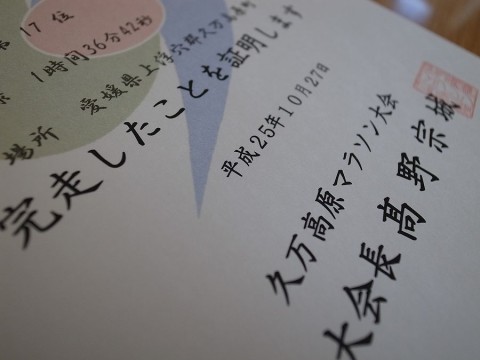 第 17 位
1時間36分42秒
場所 愛媛県上浮穴郡久万高原町
完走したことを証明します
平成25年10月27日
久万高原マラソン大会
大会長 髙野宗城